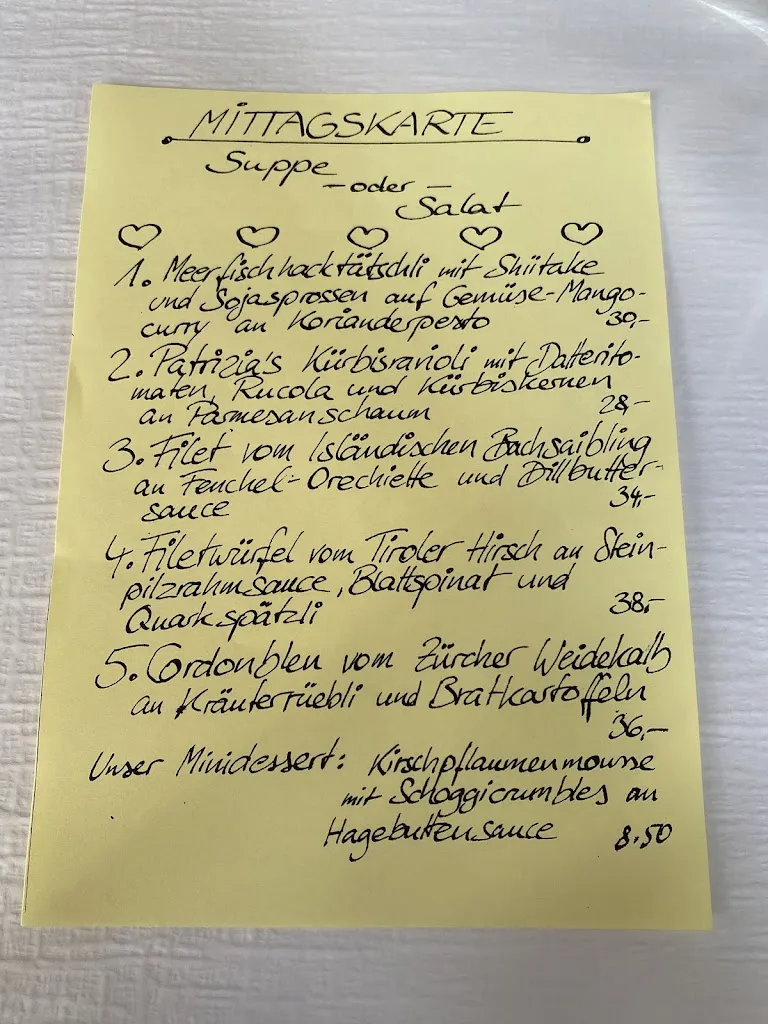 MITTAGSKARTE
Suppe
- oder -
Salat
1. Meerfischhacktätschli mit Shiitake
und Sojasprossen auf Gemüse-Mango-
curry an Korianderpesto 30,-
2. Patrizia's Kürbisravioli mit Datterito-
maten, Rucola und Kürbiskernen
an Parmesanschaum 28,-
3. Filet vom Isländischen Bachsaibling
an Fenchel-Orechiette und Dillbutter-
sauce 34,-
4. Filetwürfel vom Tiroler Hirsch an Stein-
pilzrahmsauce, Blattspinat und
Quarkspätzli 38,-
5. Cordonbleu vom Zürcher Weidekalb
an Kräuterrüebli und Bratkartoffeln
36,-
Unser Minidessert: Kirschpflaumenmousse
mit Schoggicrumbles an
Hagebuttensauce 8.50